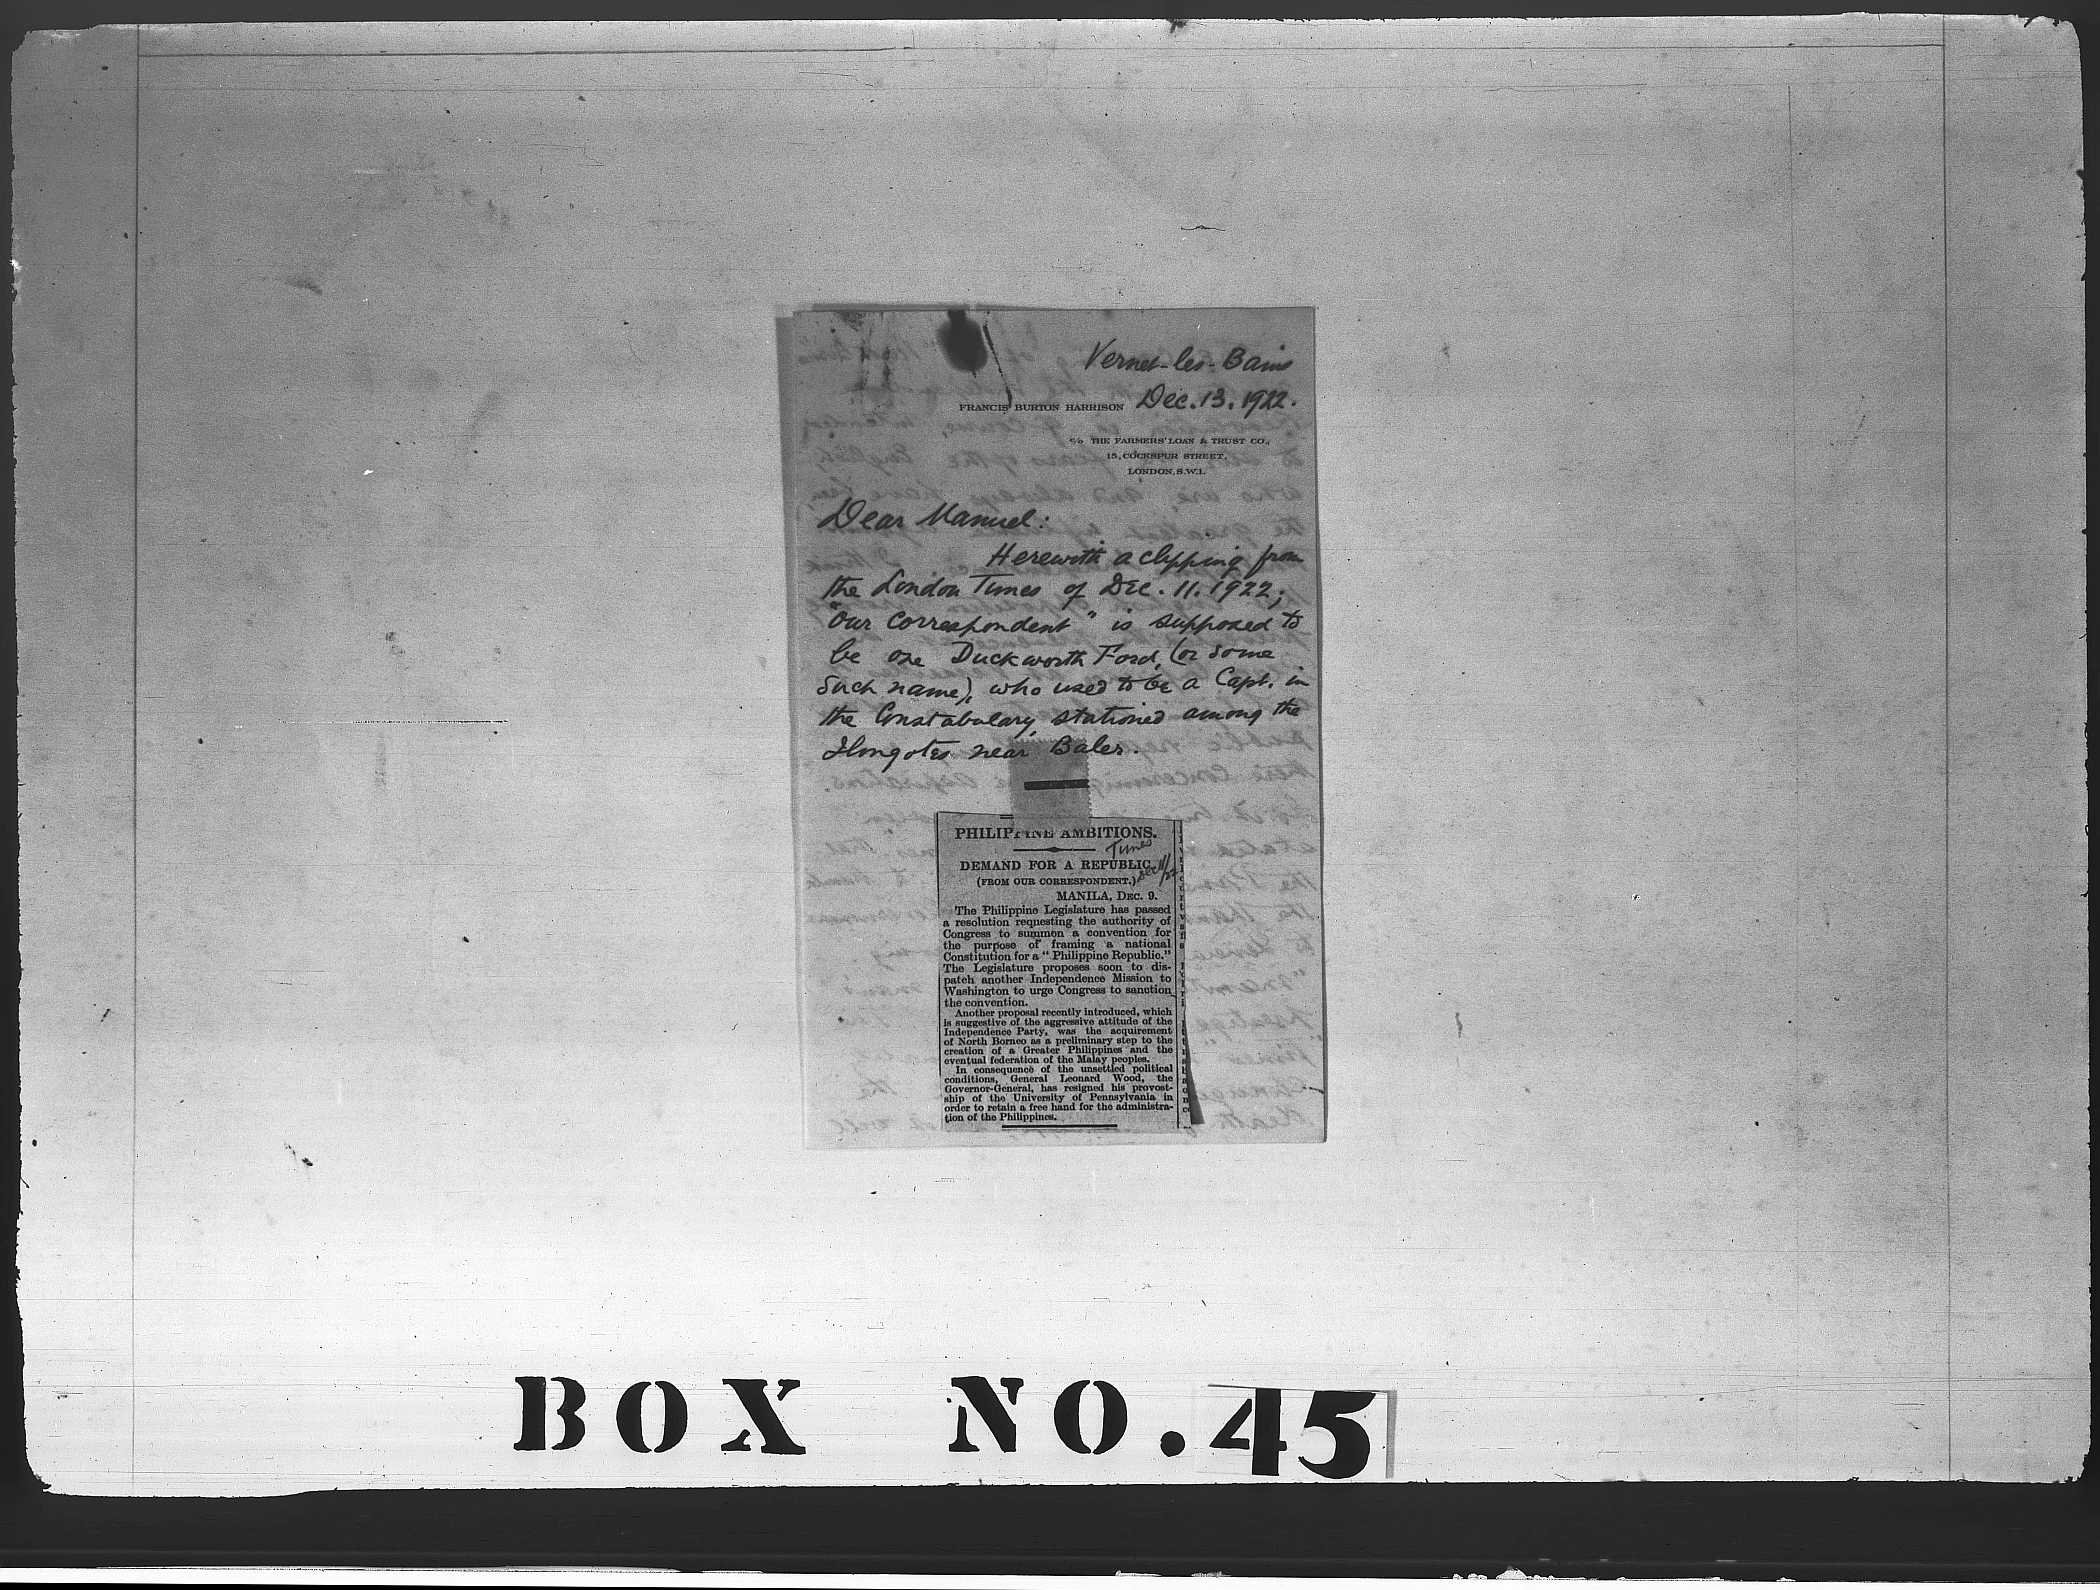 Vernet-les-Bains
Dec. 13. 1922.
FRANCIS BURTON HARRISON
c/o THE FARMERS' LOAN & TRUST CO.,
15, COCKSPUR STREET,
LONDON, S.W.1.
Dear Manuel:
Herewith a clipping from
the London Times of Dec. 11. 1922;
"Our Correspondent" is supposed to
be one Duckworth Ford, (or some
such name), who used to be a Capt. in
the Constabulary, stationed among the
Ilongotes near Baler.
PHILIPPINE AMBITIONS.
Times
DEMAND FOR A REPUBLIC.
Dec 11/22
(FROM OUR CORRESPONDENT.)
MANILA, DEC. 9.
The Philippine Legislature has passed
a resolution requesting the authority of
Congress to summon a convention for
the purpose of framing a national
Constitution for a "Philippine Republic."
The Legislature proposes soon to dis-
patch another Independence Mission to
Washington to urge Congress to sanction
the convention.
Another proposal recently introduced, which
is suggestive of the aggressive attitude of the
Independence Party, was the acquirement
of North Borneo as a preliminary step to the
creation of a Greater Philippines and the
eventual federation of the Malay peoples.
In consequence of the unsettled political
conditions, General Leonard Wood, the
Governor-General, has resigned his provost-
ship of the University of Pennsylvania in
order to retain a free hand for the administra-
tion of the Philippines.
BOX NO. 45